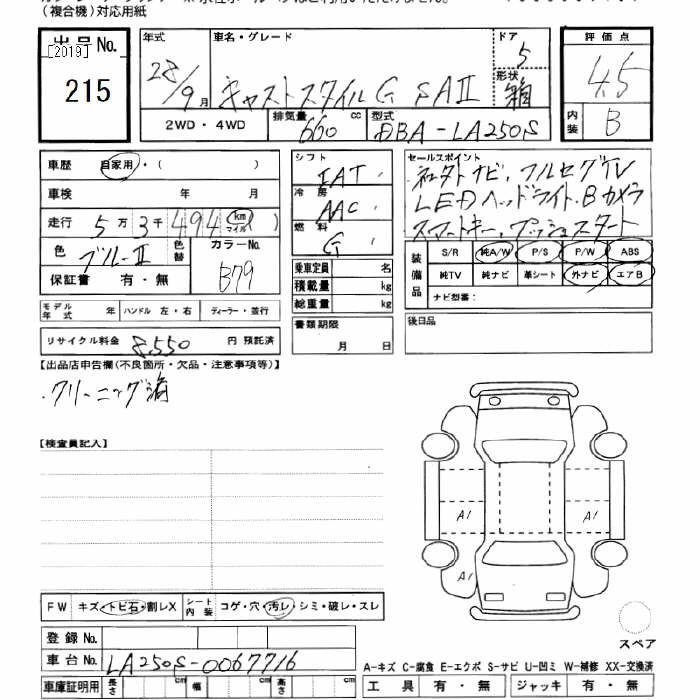 (複合機)対応用紙
出品No.
[2019]
215
年式
28/9月
車名・グレード
キャストスタイルG SAⅡ
ドア
5
形状
箱
2WD・4WD
排気量
660 cc
型式
DBA-LA250S
評価点
4.5
内装
B
車歴 自家用・( )
車検 年 月
走行 5万3千494 km マイル
色 ブルーⅡ
色替
カラーNo.
B79
保証書 有・無
モデル年式 年
ハンドル 左・右
ディーラー・並行
リサイクル料金 8,550 円 預託済
シフト
IAT
冷房
AAC
燃料
G
乗車定員 名
積載量 kg
総重量 kg
書類期限
月 日
セールスポイント
社外ナビ、フルセグTV
LEDヘッドライト、Bカメラ
スマートキー、プッシュスタート
装備品
S/R 純A/W P/S P/W ABS
純TV 純ナビ 革シート 外ナビ エアB
ナビ型番:
後日品
【出品店申告欄(不良箇所・欠品・注意事項等)】
・クリーニング済
【検査員記入】
A1
A1
A1
FW キズ・トビ石・割レX
シート内装 コゲ・穴・汚レ・シミ・破レ・スレ
登録No.
車台No. LA250S-0067716
車庫証明用 長さ cm 幅 cm 高さ cm
スペア
A-キズ C-腐食 E-エクボ S-サビ U-凹ミ W-補修 XX-交換済
工具 有・無 ジャッキ 有・無